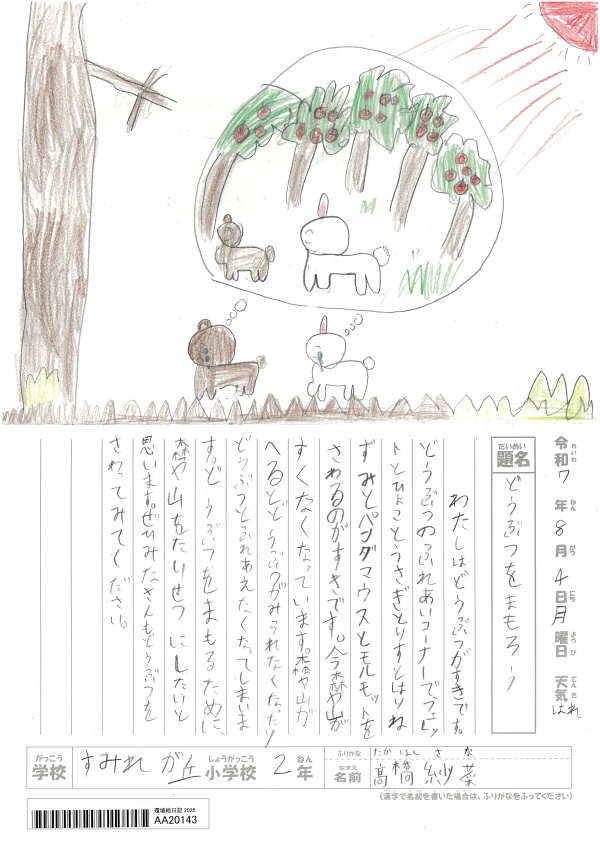 令和7年8月4日月曜日 天気はれ
れいわ ねん がつ にち ようび てんき
だいめい
題名 どうぶつをまもろう
わたしはどうぶつがすきです。
どうぶつのふれあいコーナーでフェレッ
トとひよことうさぎとりすとはりね
ずみとパンダマウスとモルモットを
さわるのがすきです。今森や山が
すくなくなっています。森や山が
へるとどうぶつがみられなくなったり
どうぶつとふれあえたくなってしまいま
す。どうぶつをまもるために、
森や山をたいせつにしたいと
思います。ぜひみなさんもどうぶつを
さわってみてください。
がっこう しょうがっこう ねん
学校 すみれが丘小学校2年
ふりがな たかはし さな
なまえ
名前 高橋 紗菜
(漢字で名前を書いた場合は、ふりがなをふってください)
環境絵日記 2025
AA20143